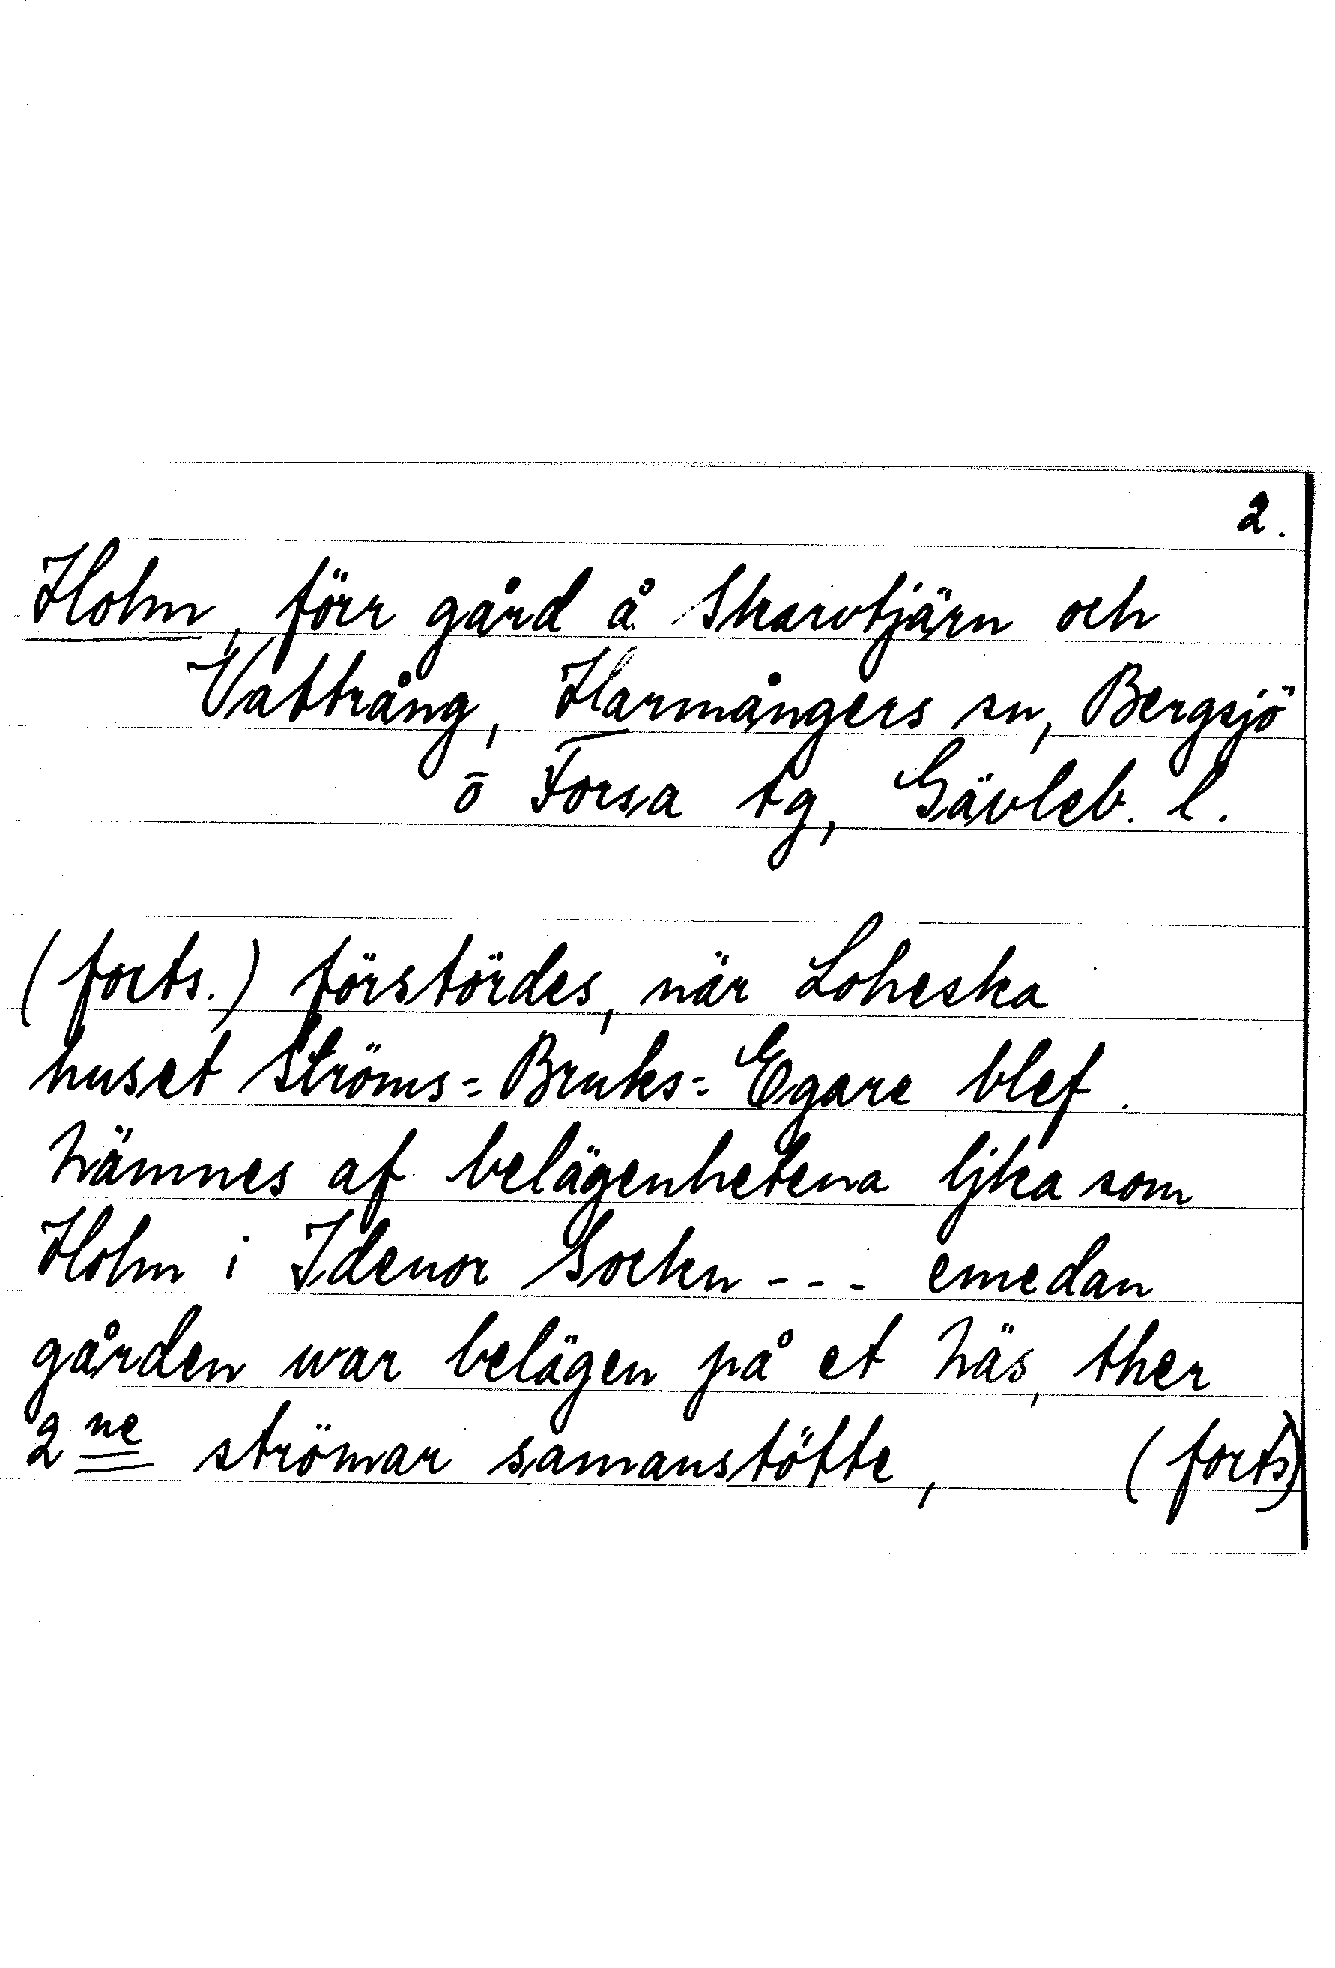 2.
Holm, förr gård å Skarvtjärn och
Vattrång, Harmångers sn, Bergsjö
o Forsa tg, Gävleb. l.
(forts.) förstördes, när Loheska
huset Ströms-Bruks-Egare blef.
Nämnes af belägenhetena ljka som
Holm i Idenor Sockn --- emedan
gården war belägen på et Näs, ther
2ne strömar samanstötte, (forts)